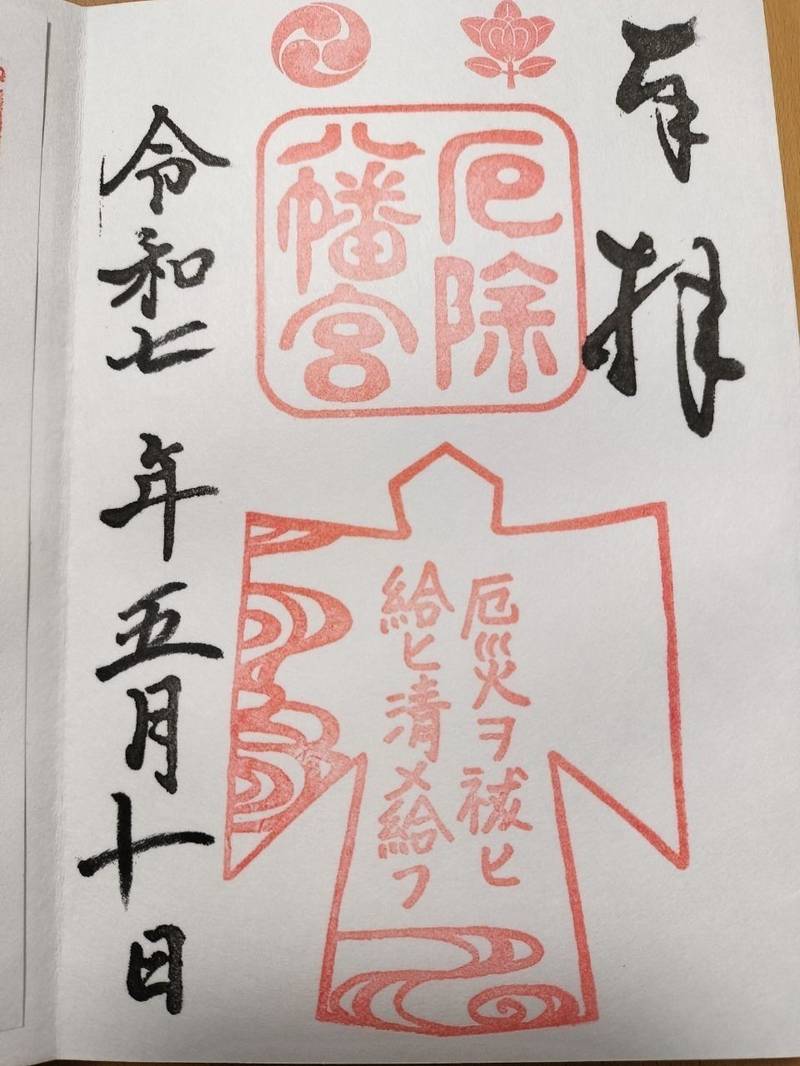 奉拝
厄除
八幡宮
厄災ヲ祓ヒ
給ヒ清メ給フ
令和七年五月十日